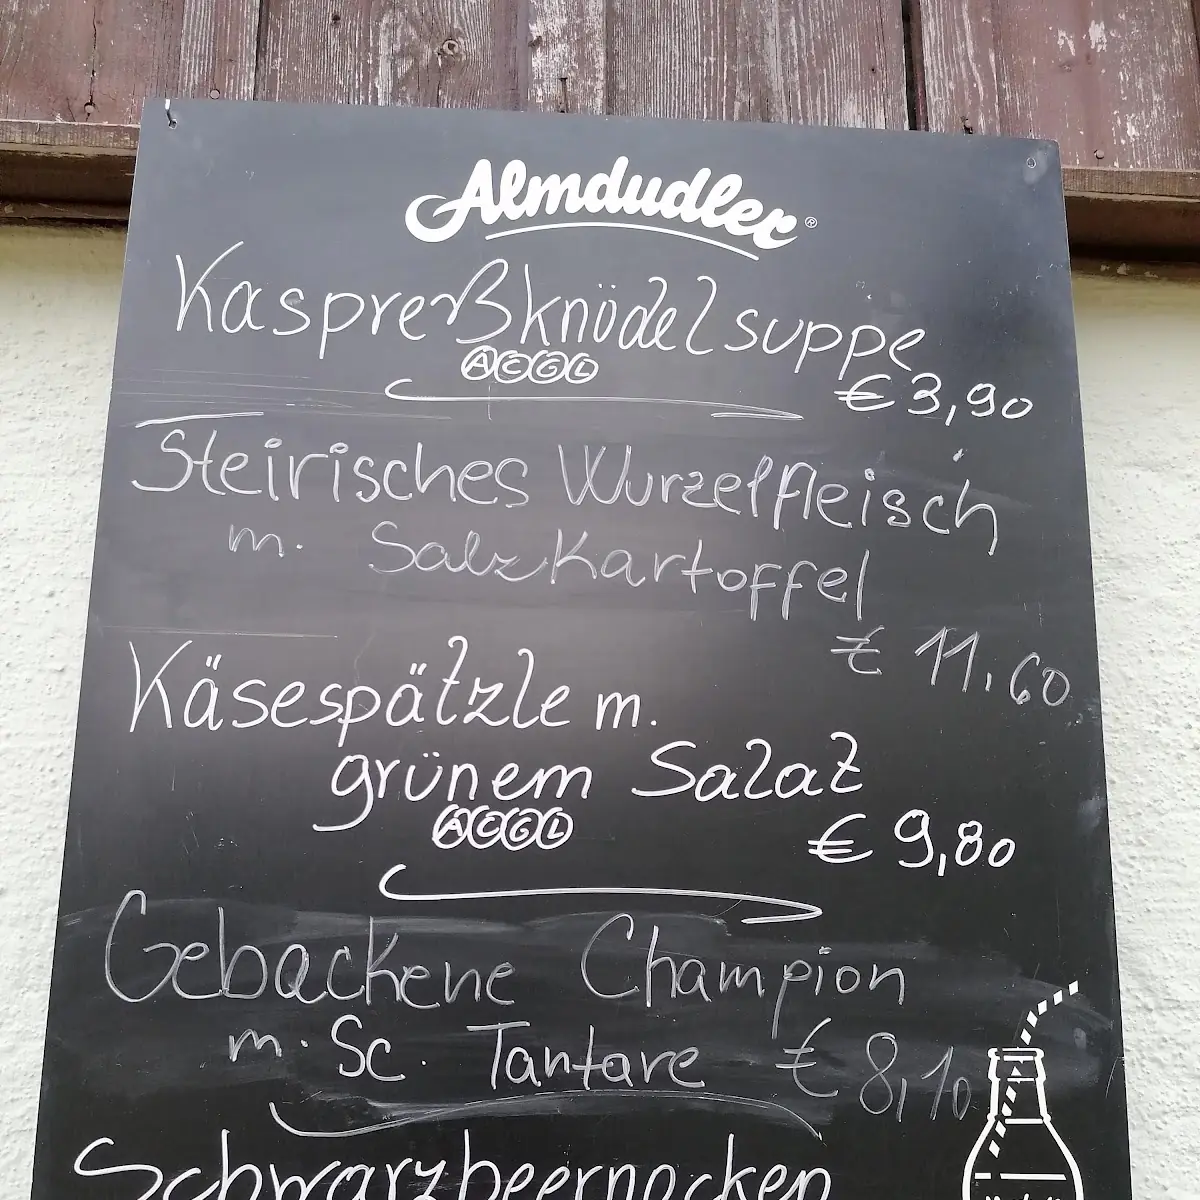 Almdudler®
Kaspreßknödelsuppe
ACGL
€ 3,90
Steirisches Wurzelfleisch
m. Salzkartoffel
€ 11.60
Käsespätzle m.
grünem Salat
ACGL
€ 9,80
Gebackene Champion
m. Sc. Tantare € 8,10
Schwarzbeernocken